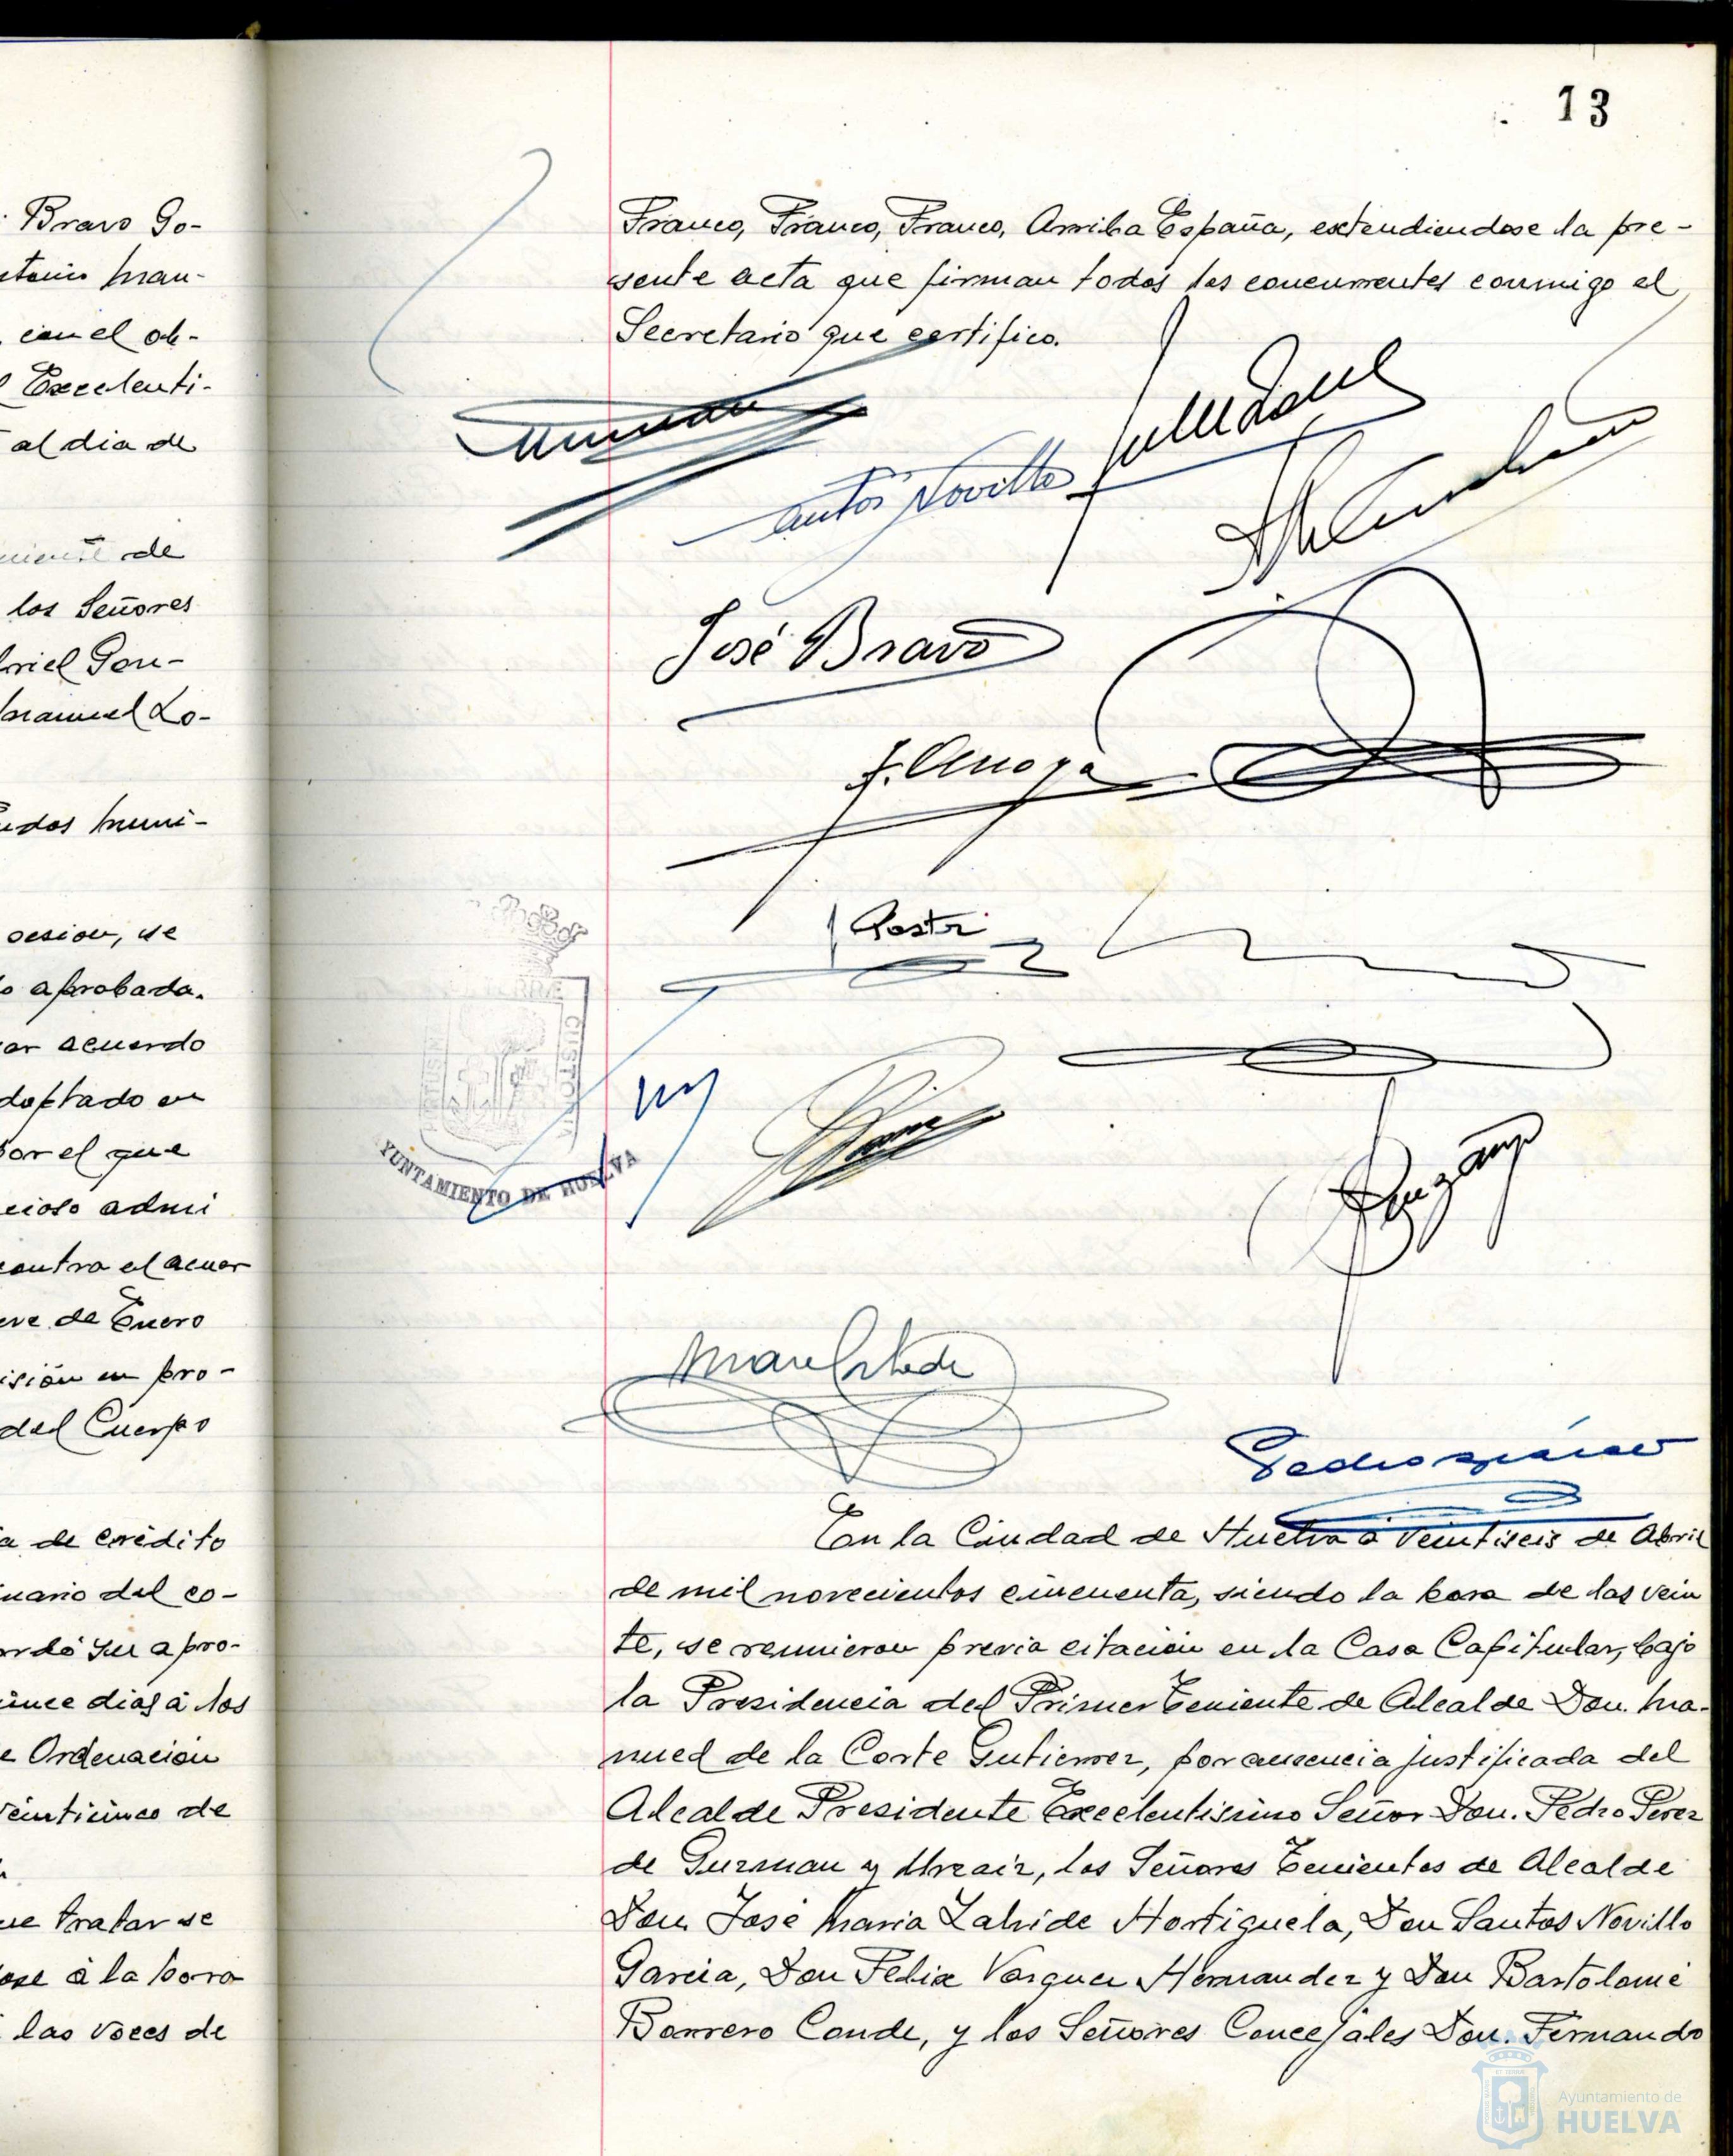 Bravo Go-
man-
con el ob-
Excelenti-
al dia de
de
los Señores
briel Gon-
manuel Lo-
muni-
sesion, se
aprobada.
acuerdo
doptado en
por el que
admi
contra el acuer
de Enero
en pro-
del Cuerpo
de crédito
del co-
su apro-
dias á los
Ordenacion
veinticinco de
tratar se
á la hora
las voces de
13
Franco, Franco, Franco, Arriba España, extendiendose la pre-
sente acta que firman todos los concurrentes conmigo el
Secretario que certifico.
Santos Novillo
José Bravo
J. Arroya
YUNTAMIENTO DE HUELVA
En la Ciudad de Huelva á veintiseis de Abril
de mil novecientos cincuenta, siendo la hora de las vein
te, se reunieron previa citacion en la Casa Capitular, bajo
la Presidencia del Primer Teniente de Alcalde Don. Ma-
nuel de la Corte Gutierrez, por ausencia justificada del
Alcalde Presidente Excelentisimo Señor Don. Pedro Perez
de Guzman y Urzaiz, los Señores Tenientes de Alcalde
Don Jose Maria Zahide Hortiguela, Don Santos Novillo
Garcia, Don Felix Vazquez Hernandez y Don Bartolomé
Borrero Conde, y los Señores Concejales Don. Fernando
Ayuntamiento de
HUELVA